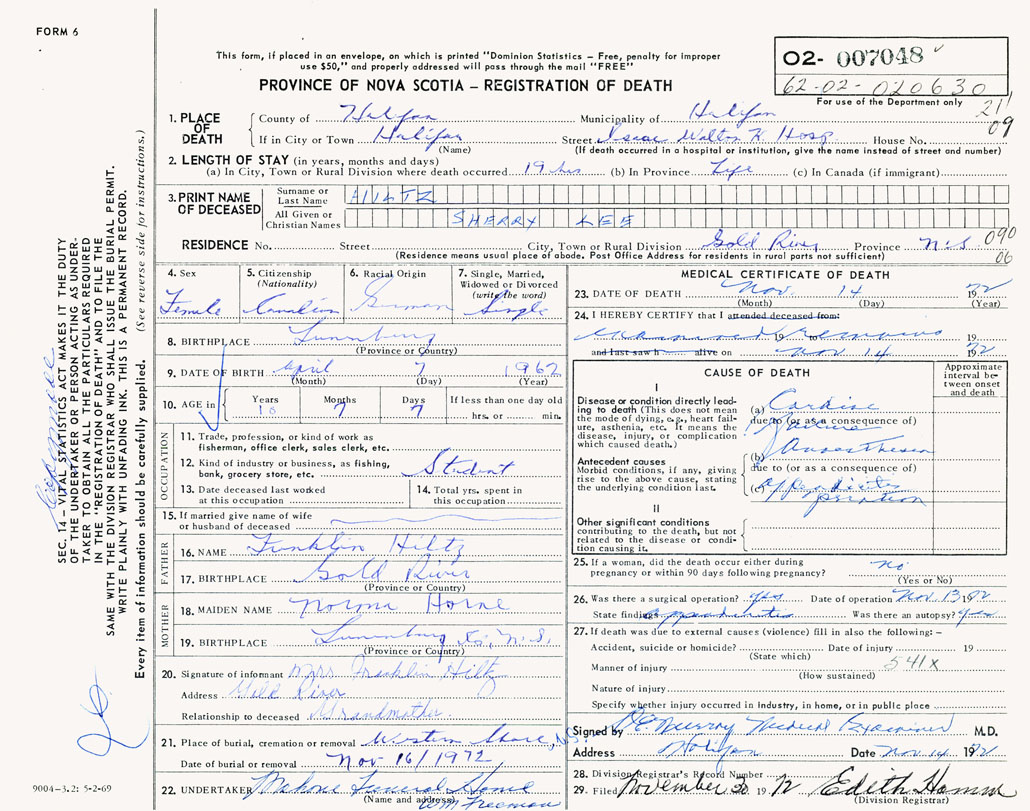 FORM 6
This form, if placed in an envelope, on which is printed "Dominion Statistics – Free, penalty for improper
use $50," and properly addressed will pass through the mail "FREE"
PROVINCE OF NOVA SCOTIA – REGISTRATION OF DEATH
02- 007048
62-02-020630
For use of the Department only
211
09
1. PLACE OF DEATH
County of Halifax Municipality of Halifax
If in City or Town Halifax Street Isaac Walton K. Hosp House No.
(Name) (If death occurred in a hospital or institution, give the name instead of street and number)
2. LENGTH OF STAY (in years, months and days)
(a) In City, Town or Rural Division where death occurred 19 hrs (b) In Province Life (c) In Canada (if immigrant)
3. PRINT NAME OF DECEASED
Surname or Last Name HILTZ
All Given or Christian Names SHERRY LEE
RESIDENCE No. Street City, Town or Rural Division Gold River Province N.S.
090
06
(Residence means usual place of abode. Post Office Address for residents in rural parts not sufficient)
4. Sex
Female
5. Citizenship (Nationality)
Canadian
6. Racial Origin
German
7. Single, Married, Widowed or Divorced (write the word)
Single
8. BIRTHPLACE Lunenburg
(Province or Country)
9. DATE OF BIRTH April 7 1962
(Month) (Day) (Year)
10. AGE in
Years 10
Months 7
Days 7
If less than one day old
hrs. or min.
OCCUPATION
11. Trade, profession, or kind of work as
fisherman, office clerk, sales clerk, etc.
12. Kind of industry or business, as fishing,
bank, grocery store, etc. Student
13. Date deceased last worked
at this occupation
14. Total yrs. spent in
this occupation
15. If married give name of wife
or husband of deceased
FATHER
16. NAME Franklin Hiltz
17. BIRTHPLACE Gold River
(Province or Country)
MOTHER
18. MAIDEN NAME Norma Horne
19. BIRTHPLACE Lunenburg Co. N.S.
(Province or Country)
20. Signature of informant Mrs. Franklin Hiltz
Address Gold River
Relationship to deceased Grandmother
21. Place of burial, cremation or removal Western Shore, N.S.
Date of burial or removal Nov 16/1972
22. UNDERTAKER Mahone Funeral Home
(Name and address) Wm Freeman
MEDICAL CERTIFICATE OF DEATH
23. DATE OF DEATH Nov. 14 1972
(Month) (Day) (Year)
24. I HEREBY CERTIFY that I attended deceased from:
examined 19 to remains 19
and last saw h alive on Nov 14 1972
CAUSE OF DEATH
Approximate interval between onset and death
I
Disease or condition directly leading to death (This does not mean the mode of dying, e.g., heart failure, asthenia, etc. It means the disease, injury, or complication which caused death.)
(a) Cardiac
failure
due to (or as a consequence of)
Antecedent causes
Morbid conditions, if any, giving rise to the above cause, stating the underlying condition last.
(b) Anaesthesia
due to (or as a consequence of)
(c) appendicitis
operation
II
Other significant conditions
contributing to the death, but not related to the disease or condition causing it.
25. If a woman, did the death occur either during
pregnancy or within 90 days following pregnancy? no
(Yes or No)
26. Was there a surgical operation? yes Date of operation Nov. 13 1972
State findings appendicitis Was there an autopsy? yes
27. If death was due to external causes (violence) fill in also the following:–
Accident, suicide or homicide? Date of injury 19
(State which)
Manner of injury 541X
(How sustained)
Nature of injury
Specify whether injury occurred in industry, in home, or in public place
Signed by Murray Medical Examiner M.D.
Address Halifax Date Nov 14 1972
28. Division Registrar's Record Number
29. Filed November 30 1972 Edith Hamm
(Division Registrar)
SEC. 14 – VITAL STATISTICS ACT MAKES IT THE DUTY
OF THE UNDERTAKER OR PERSON ACTING AS UNDER-
TAKER TO OBTAIN ALL THE PARTICULARS REQUIRED
IN THE "REGISTRATION OF DEATH" AND TO FILE THE
SAME WITH THE DIVISION REGISTRAR WHO SHALL ISSUE THE BURIAL PERMIT.
WRITE PLAINLY WITH UNFADING INK. THIS IS A PERMANENT RECORD.
Every item of information should be carefully supplied. (See reverse side for instructions.)
9004–3.2: 5-2-69